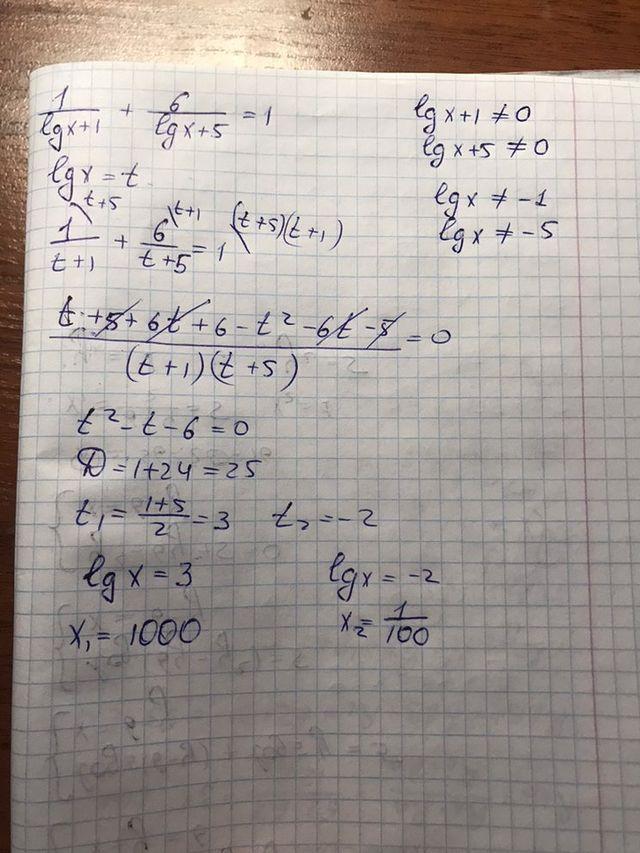 1/(lg x+1) + 6/(lg x+5) = 1
lg x+1 ≠ 0
lg x+5 ≠ 0
lg x = t
lg x ≠ -1
lg x ≠ -5
1/(t+1) \t+5 + 6/(t+5) \t+1 = 1 \(t+5)(t+1)
(t+5+6t+6-t²-6t-5)/((t+1)(t+5)) = 0
t²-t-6=0
D=1+24=25
t₁ = (1+5)/2 = 3 t₂ = -2
lg x = 3 lg x = -2
x₁ = 1000 x₂ = 1/100